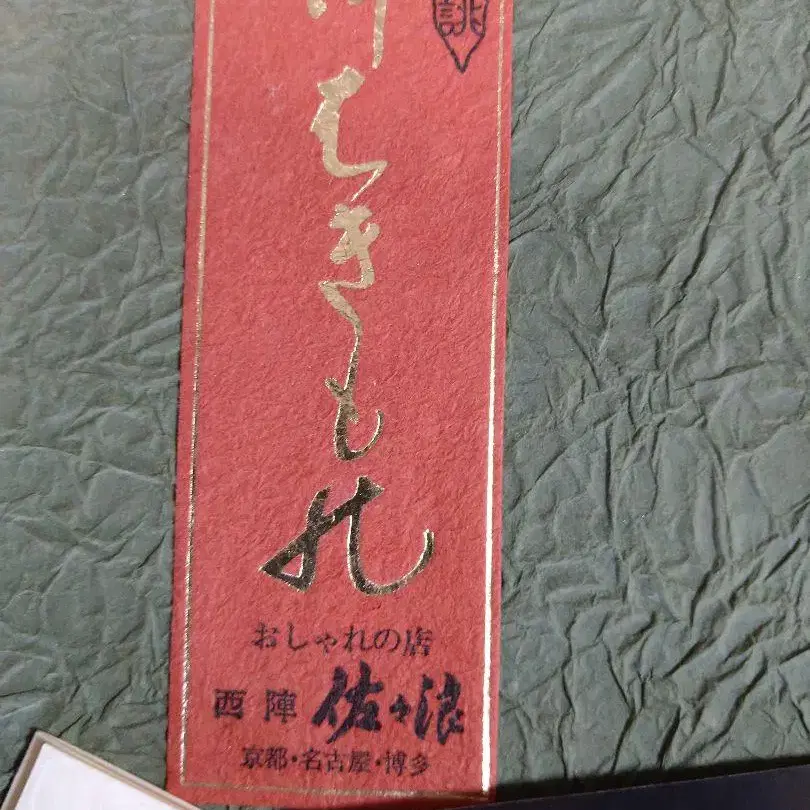 誂
はきもの
おしゃれの店
西陣 佐々浪
京都・名古屋・博多